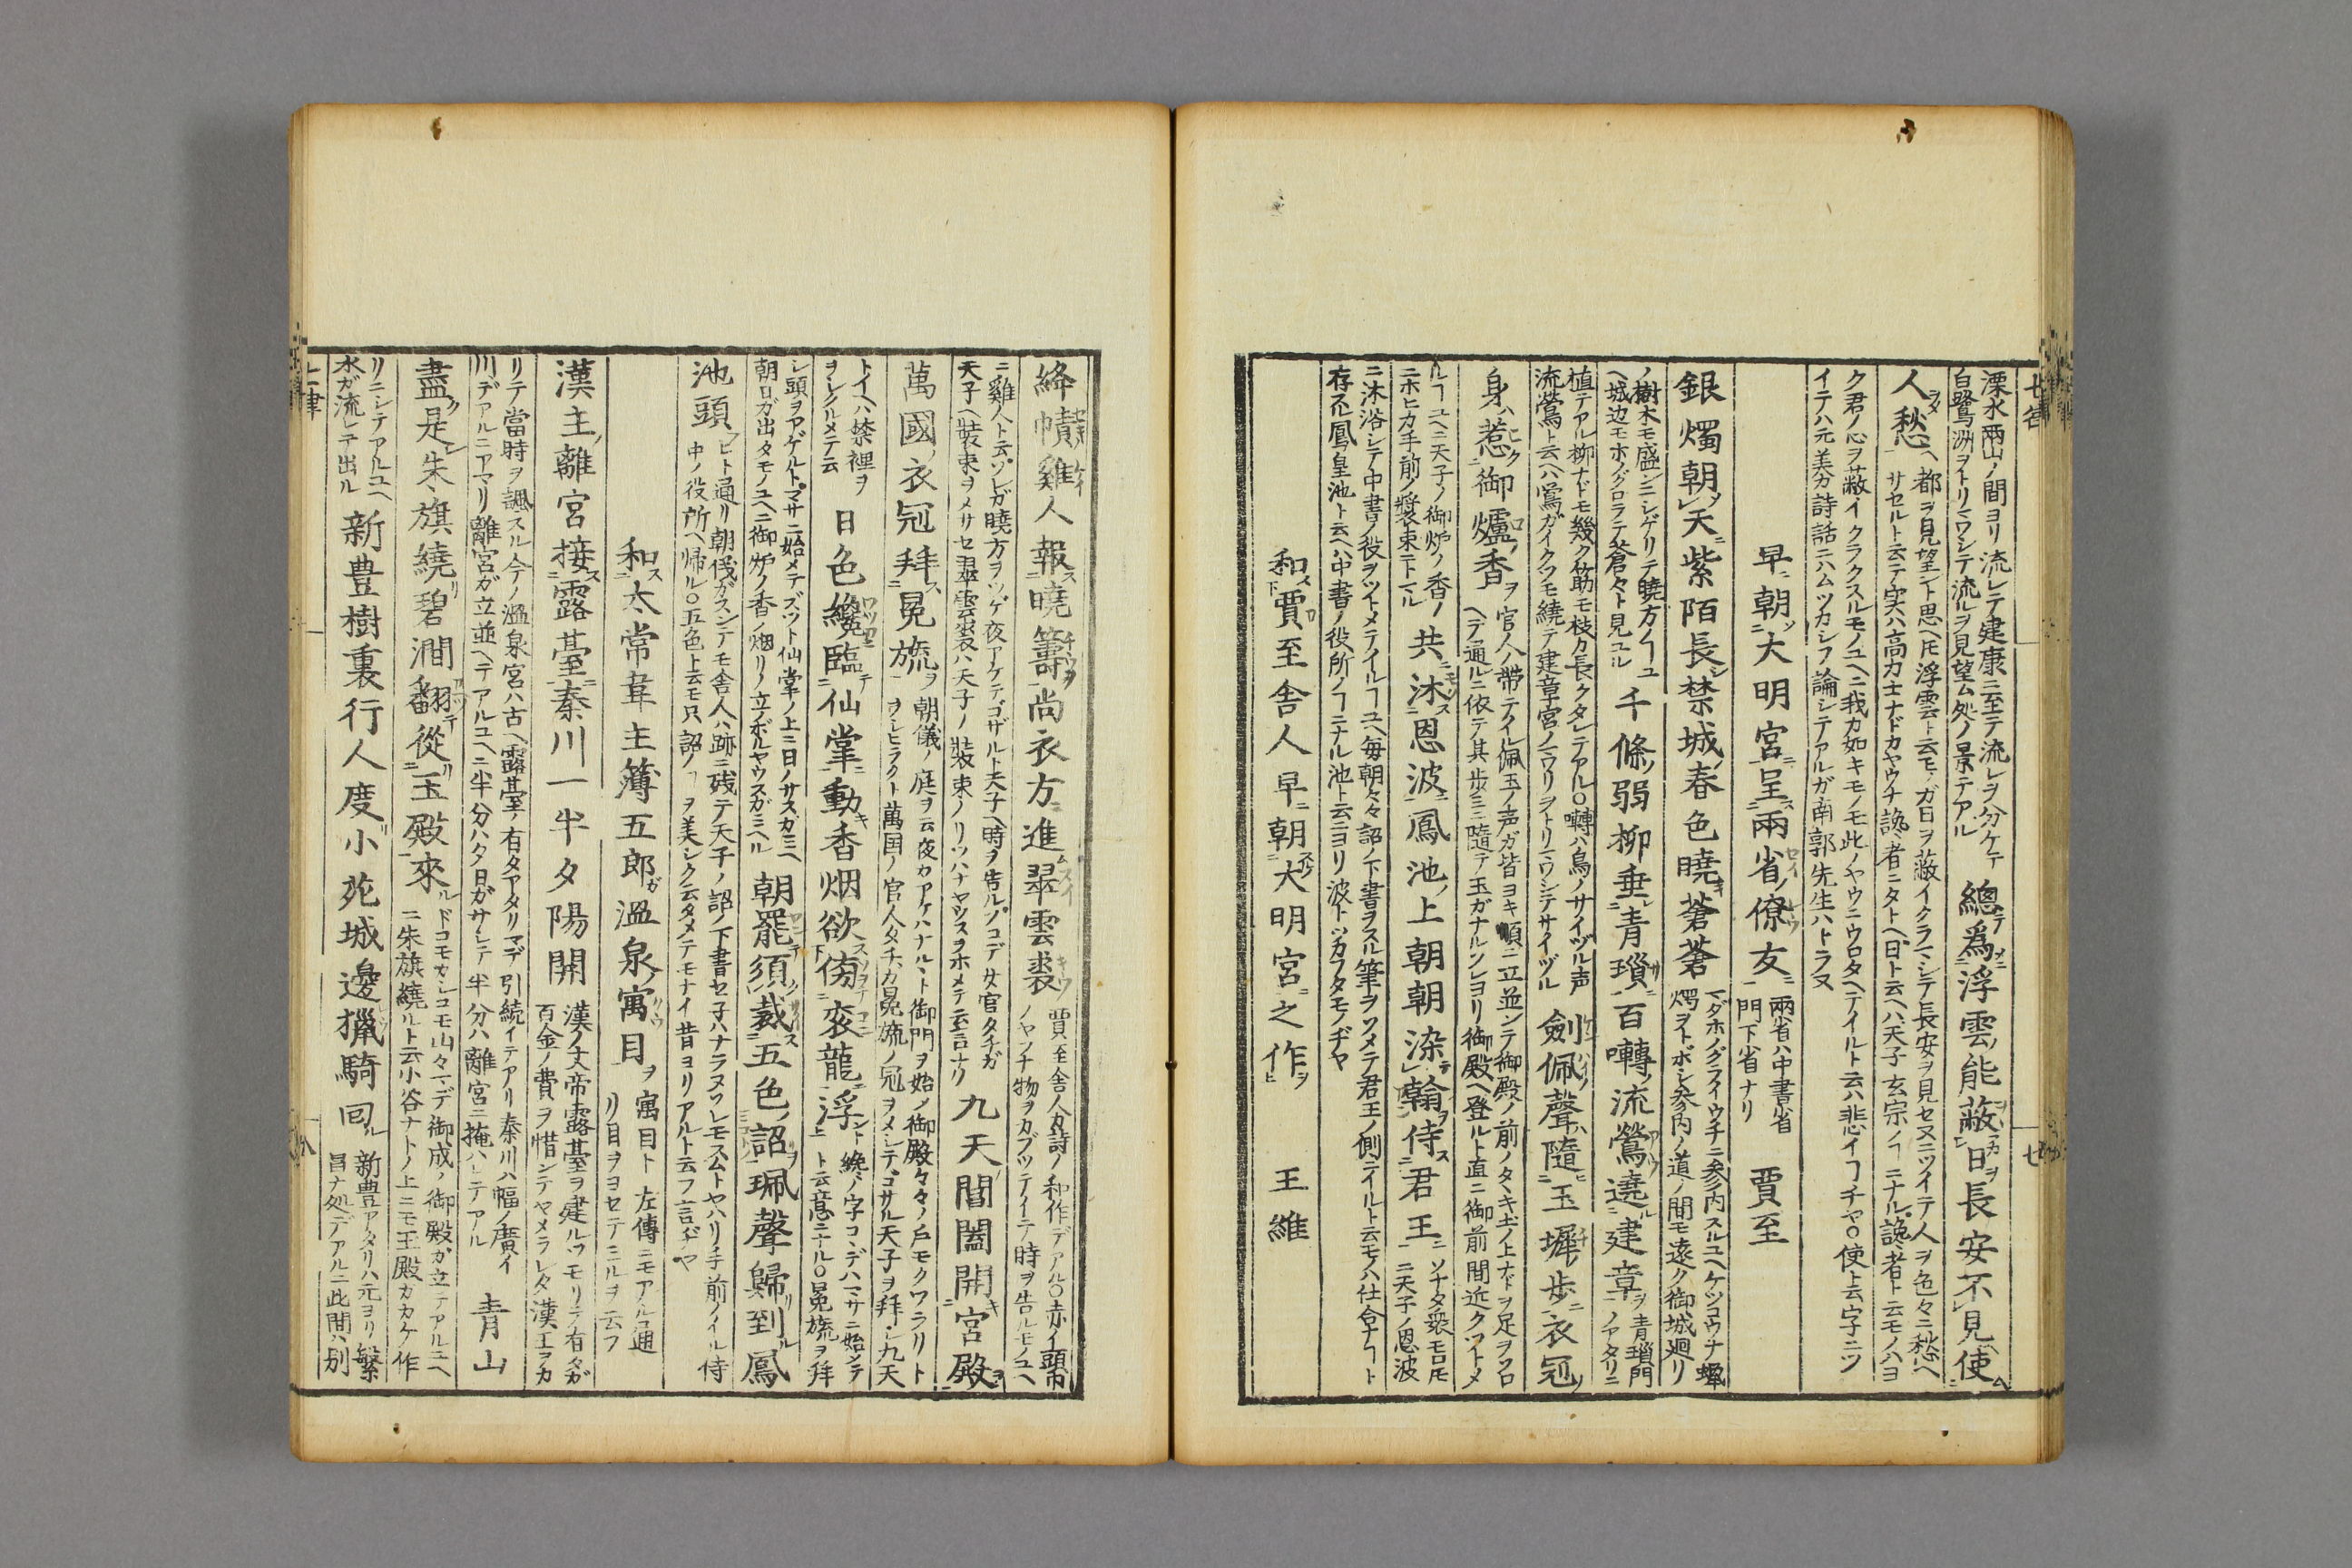 溧水兩山ノ間ヨリ流レテ建康ニ至テ流レヲ分ケテ
白鷺洲ヲトリマワシテ流ルヲ見望ム処ノ景テアル
總爲浮雲能蔽日長安不見使
人愁
都ヲ見望ント思ヘ𪜈浮雲ト云モノガ日ヲ蔽イクラマシテ長安ヲ見セヌニツイテ人ヲ色々ニ愁ヘ
サセルト云テ実ハ高力士ナドカヤウナ讒者ニタトヘ日ト云ヘハ天子玄宗ノヿニナル讒者ト云モノハヨ
ク君ノ心ヲ蔽イクラクスルモノユヘニ我カ如キモノモ此ノヤウニウロタヘテイルト云ハ悲イヿチヤ○使ト云字ニツ
イテハ元美ガ詩話ニハムツカシフ論シテアルガ南郭先生ハトラヌ
早朝大明宮呈兩省僚友
兩省ハ中書省
門下省ナリ
賈至
銀燭朝天紫陌長禁城春色曉蒼蒼
マダホノグライウチニ参内スルユヘケツコウナ蝋
燭ヲトボシ参内ノ道ノ間モ遠ク御城廻リ
ノ樹木モ盛ンニシゲリテ曉方ノヿユ
ヘ城辺モホノグロラテ蒼々ト見ユル
千條弱柳垂青瑣百囀流鶯遶建章
青瑣門
ノアタリニ
植テアル柳ナドモ幾ク筋モ枝カ長クタレテアル○囀ハ鳥ノサイヅル声
流鶯ト云ヘハ鶯ガイクツモ繞テ建章宮ノマワリヲトリマワシテサイヅル
劍佩聲隨玉墀歩衣冠
身惹御爐香
官人ノ帶テイル佩玉ノ声ガ皆ヨキ順ニ立並ンテ御殿ノ前ノタヽキ土ノ上ナドヲ足ヲソロ
ヘテ通ルニ依テ其歩ミニ隨テ玉ガナルソレヨリ御殿ヘ登ルト直ニ御前間近クツトメ
ルヿユヘニ天子ノ御炉ノ香ノ
ニホヒカ手前ノ裝束ニトマル
共沐恩波鳳池上朝朝染翰侍君王
ソナタ衆モ𪜈
ニ天子ノ恩波
ニ沐浴シテ中書ノ役ヲツトメテイルヿユヘ毎朝々々詔ノ下書ヲスル筆ヲソメテ君王ノ側ニイルト云モノハ仕合ナヿト
存ル鳳皇池ト云ヘハ中書ノ役所ノヿニナル池ト云ニヨリ波トツカフタモノヂヤ
和賈至舍人早朝大明宮之作
王維
絳幘雞人報曉籌尚衣方進翠雲裘
賈至舍人カ詩ノ和作デアル○赤イ頭巾
ノヤウナ物ヲカブツテイテ時ヲ告ルモノユヘ
ニ雞人ト云ソレガ曉方ヲツゲ夜アケテゴザルト天子ヘ時ヲ告ルソコデ女官タチガ
天子ヘ裝束ヲメサセ翠雲裘ハ天子ノ裝束ノリツハナヤツヲホメテ云言ナリ
九天閶闔開宮殿
萬國衣冠拜冕旒
朝儀ノ庭ヲ云夜カアケハナルヽト御門ヲ始メ御殿々々ノ戸モクワラリト
ヲシヒラクト萬国ノ官人タチカ冕旒ノ冠ヲメシテゴサル天子ヲ拜シ九天
トイヘハ禁裡ヲ
ヲシクルメテ云
日色纔臨仙掌動香烟欲傍袞龍浮
纔ノ字コヽデハマサニ始メテ
ト云意ニナル○冕旒ヲ拜
シ頭ヲアゲルトマサニ始メテズツト仙掌ノ上ニ日ノサスガミヘ
朝日ガ出タモノユヘニ御炉ノ香ノ烟リノ立ノボルヤウスガミヘル
朝罷須裁五色詔珮聲歸到鳳
池頭
ヒト通リ朝儀ガスンテモ舍人ハ跡ニ残テ天子ノ詔ノ下書セ子ハナラヌソレモスムトヤハリ手前ノイル侍
中ノ役所ヘ帰ル○五色ト云モ只詔ノヿヲ美シク云タメテモナイ昔ヨリアルト云フ言ヂヤ
和太常韋主簿五郎溫泉寓目
寓目ト左傳ニモアルヿ通
リ目ヲヨセテミルヲ云フ
漢主離宮接露臺秦川一半夕陽開
漢ノ文帝露臺ヲ建ルツモリテ有タガ
百金ノ費ヲ惜ンテヤメラレタ漢王ヲカ
リテ當時ヲ諷スル今ノ溫泉宮ハ古ヘ露臺テ有タアタリマデ引続イテアリ秦川ハ幅ノ廣イ
川デアルニアマリ離宮ガ立並ヘテアルユヘニ半分ハタ日ガサシテ半分ハ離宮ニ掩ハレテアル
青山
盡是朱旗繞碧澗翻從玉殿來
ドコモカシコモ山々マデ御成ノ御殿ガ立テアルユヘ
ニ朱旗繞ルト云小谷ナトノ上ニモ玉殿ガカケ作
リニシテアルユヘ
水ガ流レテ出ル
新豊樹裏行人度小苑城邊獵騎回
新豊アタリハ元ヨリ繁
昌ナ処デアルニ此間ハ別